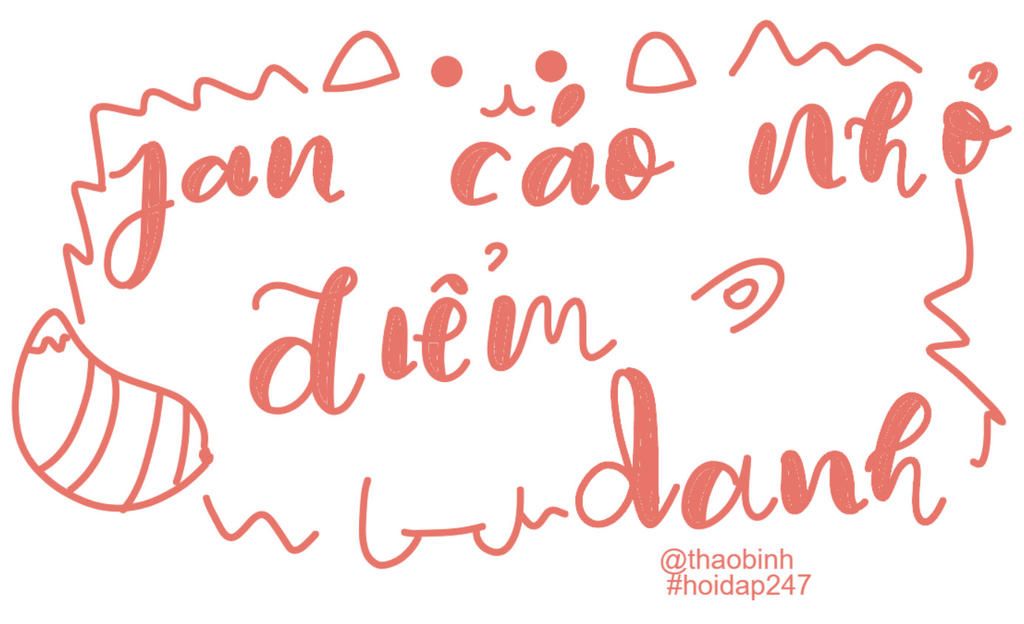 fan cáo nhỏ
điểm
danh
@thaobinh
#hoidap247